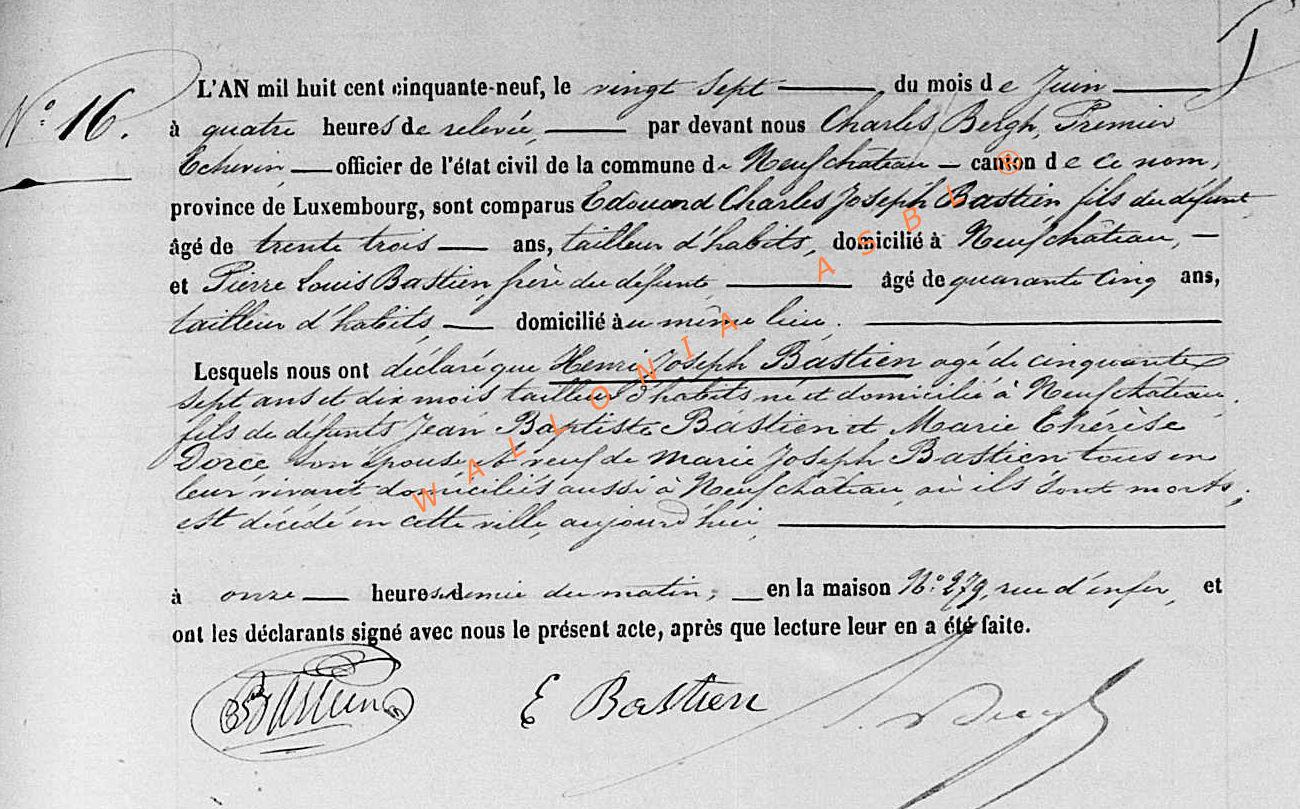 N° 16.
L'AN mil huit cent cinquante-neuf, le vingt sept du mois de Juin
à quatre heures de relevée, par devant nous Charles Bergh, Premier
Echevin, officier de l'état civil de la commune de Neufchâteau canton de ce nom,
province de Luxembourg, sont comparus Edouard Charles Joseph Bastien fils du défunt
âgé de trente trois ans, tailleur d'habits, domicilié à Neufchâteau,
et Pierre Louis Bastien, frère du défunt, âgé de quarante cinq ans,
tailleur d'habits, domicilié au même lieu.
Lesquels nous ont déclaré que Henri Joseph Bastien agé de cinquante
sept ans et dix mois tailleur d'habits né et domicilié à Neufchâteau.
fils de défunts Jean Baptiste Bastien et Marie Thérèse
Dorcé son épouse et veuf de Marie Joseph Bastien tous en
leur vivant domiciliés aussi à Neufchâteau, où ils sont morts,
est décédé en cette ville, aujourd'hui,
à onze heures demie du matin, en la maison N° 279, rue d'enfer, et
ont les déclarants signé avec nous le présent acte, après que lecture leur en a été faite.
Bastien
E Bastien
WALLONIA ASBL ®